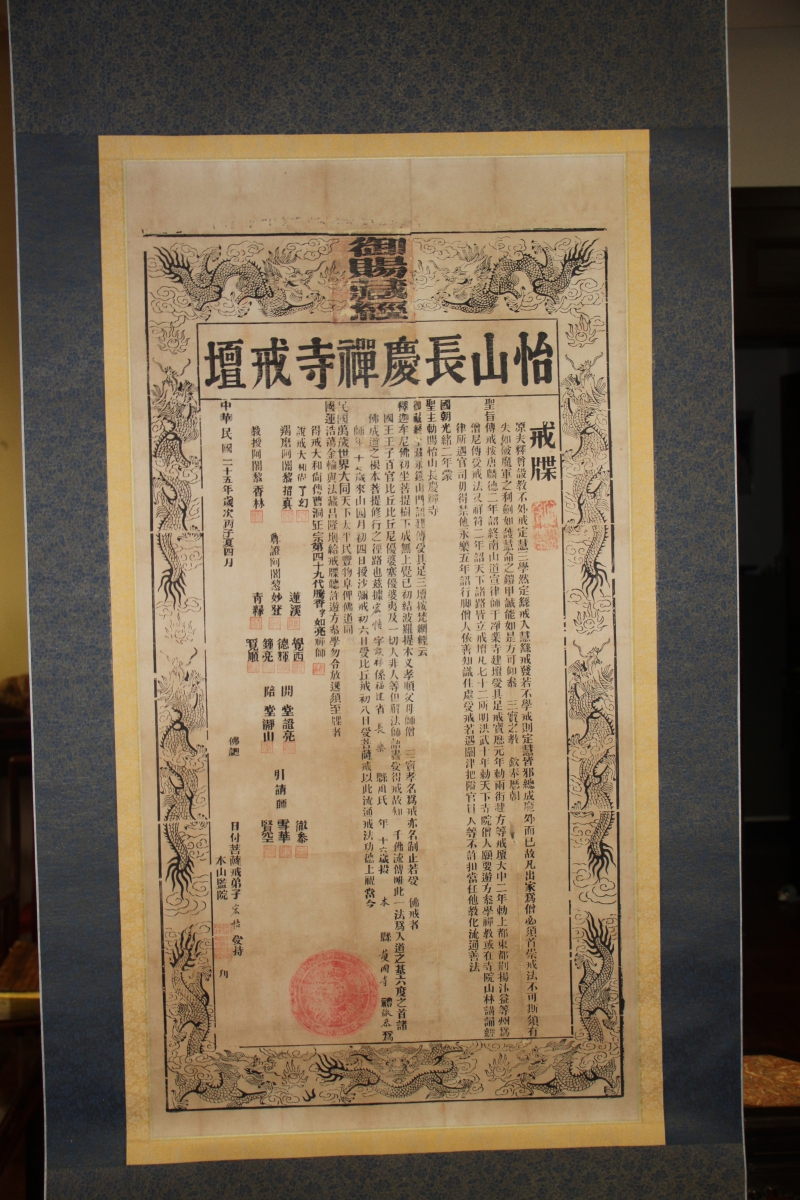 御賜藏經
怡山長慶禪寺戒壇
戒牒
原夫釋尊設教不外戒定慧三學然定繇戒入慧繇戒發若不學戒則定慧皆邪總成魔外而已故凡出家爲僧必須首崇戒法不可斯須有
失如破魔軍之利劍如護慧命之鎧甲誠能如是方可仰叅 三寶之數 欽奉歷朝
聖旨
傳戒按唐麟德二年詔終南山道宣律師于淨業寺建壇受具足戒寶歷元年勅兩街建方等戒壇大中二年勅上都東都荊揚汴益等州爲
僧尼傳受戒法 祥符二年詔天下諸路皆立戒壇凡七十二所明洪武十年勅天下寺院僧人願要遊方叅學禪教或在寺院山林講誦經
律所遇官司毋得禁他永樂五年詔行脚僧人依善知識住處受戒若遇關津把隘官員人等不許担當任他教化流通善法
國朝光緒二年蒙
聖主勅賜怡山長慶禪寺
御藏經
釋迦牟尼佛初坐菩提樹下成無上覺已初結波羅提木叉孝順父母師僧 三寶孝名爲戒亦名制止若受 佛戒者
國王王子百官比丘比丘尼優婆塞優婆夷及一切人非人等但解法師語盡受得戒故知 千佛流傳唯此一法爲入道之基六度之首諸
佛成道之根本菩提修行之徑路也茲據 宏悟 字 係福建省 長樂 縣 氏 年 十六歲投 本 縣 護國寺 禮 爲
師年 十六歲來山四月初四日授沙彌戒初六日受比丘戒初八日受菩薩戒以此流通戒法功德上祝當今
民國萬歲世界大同天下太平民豐物阜俾佛道同
國運浩蕩金輪與法藏昌隆須給戒牒聽許遊方叅學勿令放逸須至牒者
得戒大和尚傳曹洞正宗第四十九代 如亮禪師
說戒大和尚了幻
羯磨阿闍黎 真
教授阿闍黎香林
尊證阿闍黎
蓮溪
妙登
青禪
覺西
德輝
鋒亮
覓順
開堂證亮
陪堂瀞山
引請師
徹叅
雪華
賢空
中華民國二十五年歲次丙子夏四月
佛 日付菩薩戒弟子 宏悟 受持
本山監院